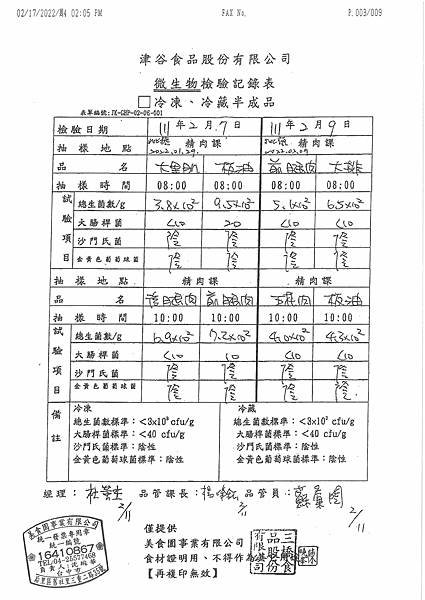 02/17/2022/週4 02:05 PM FAX No. P. 003/009
津谷食品股份有限公司
微生物檢驗記錄表
□冷凍、冷藏半成品
表單編號:JK-GHP-02-06-001
檢驗日期 111年2月7日 111年2月9日
抽樣地點 精肉課 精肉課
2022.01.29. 2022.02.09
品名 大里肌 板油 前腿肉 大排
抽樣時間 08:00 08:00 08:00 08:00
試驗項目
總生菌數/g 3.8×10² 9.5×10² 5.1×10² 6.5×10²
大腸桿菌 <10 20 <10 <10
沙門氏菌 陰 陰 陰 陰
金黃色葡萄球菌 陰 陰 陰 陰
抽樣地點 精肉課 精肉課
品名 後腿肉 前腿肉 板油
抽樣時間 10:00 10:00 10:00 10:00
試驗項目
總生菌數/g 6.9×10² 7.2×10² 4.0×10² 4.3×10²
大腸桿菌 <10 10 <10 <10
沙門氏菌 陰 陰 陰 陰
金黃色葡萄球菌 陰 陰 陰 陰
備註
冷凍 冷藏
總生菌數標準:<3x10⁵ cfu/g 總生菌數標準:<3x10⁶ cfu/g
大腸桿菌標準:<40 cfu/g 大腸桿菌標準:<40 cfu/g
沙門氏菌標準:陰性 沙門氏菌標準:陰性
金黃色葡萄球菌標準:陰性 金黃色葡萄球菌標準:陰性
經理: 品管課長: 品管員:
2/11 2/11 2/11
美食園事業有限公司
統一發票專用章
統一編號
16410867
TEL:04-25577468
台中市
僅提供
美食園事業有限公司
食材證明用、不得作為
【再複印無效】
三橋食品股份有限公司